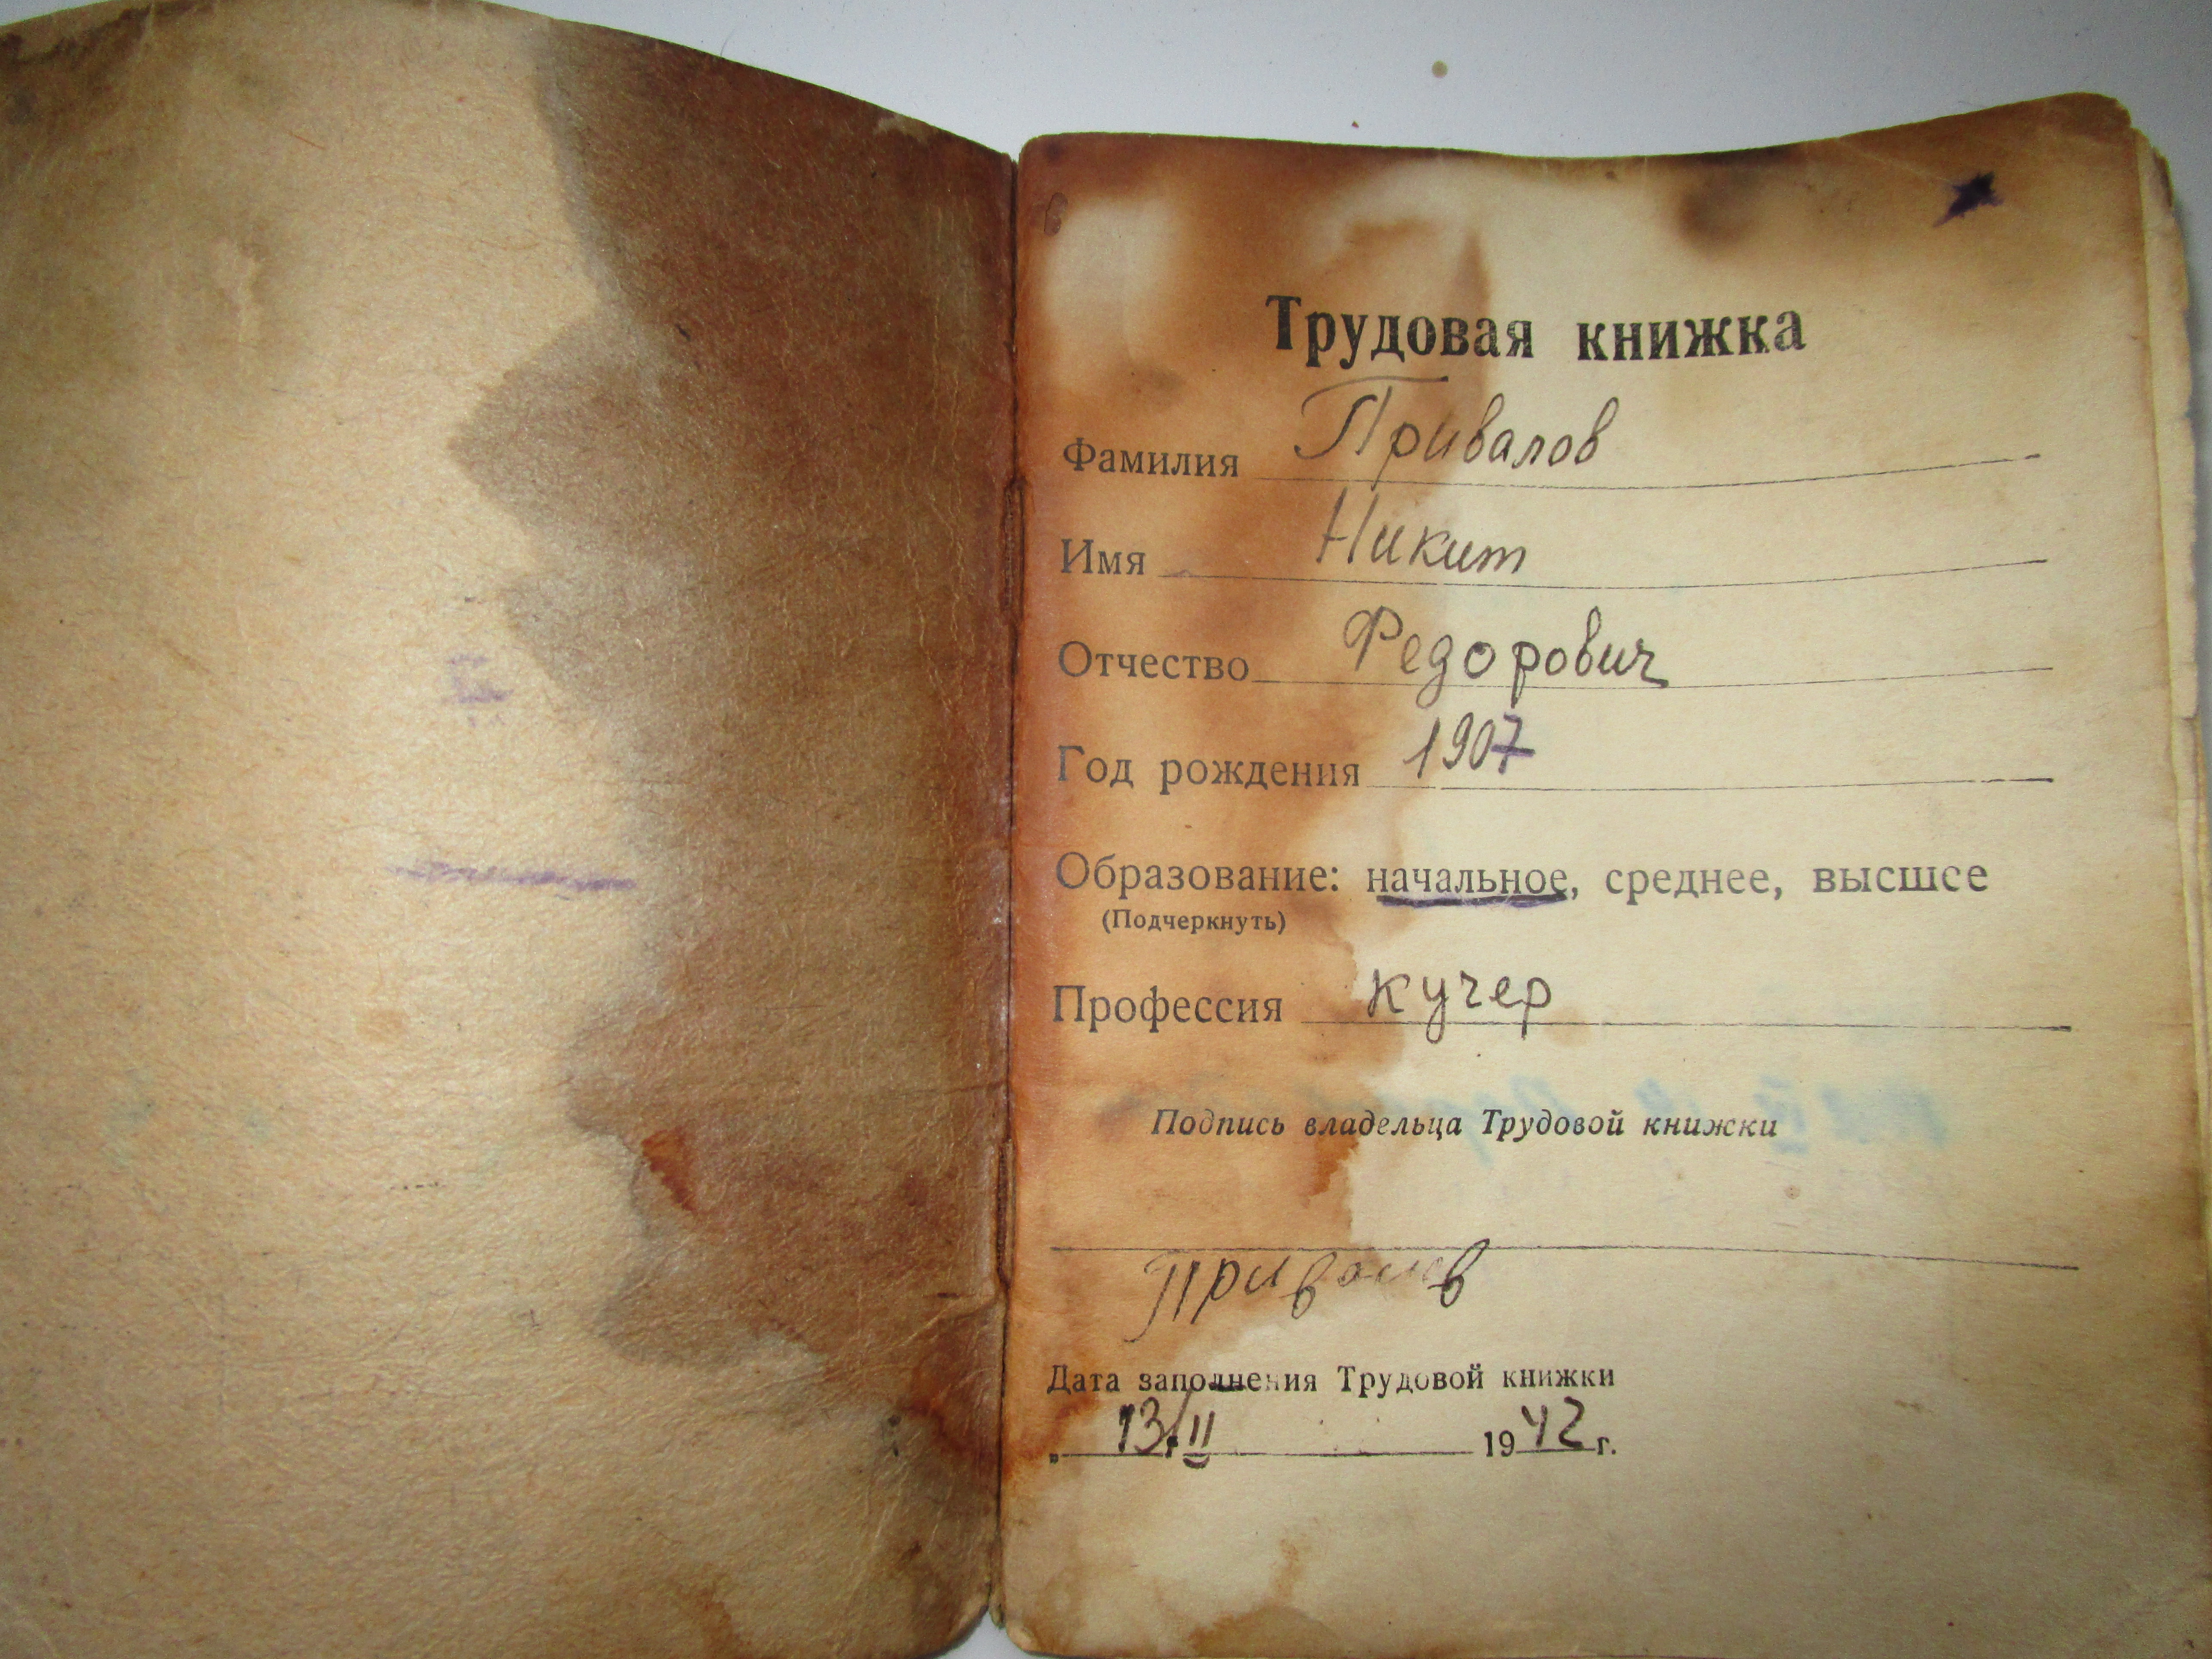 Трудовая книжка
Фамилия Привалов
Имя Никит
Отчество Федорович
Год рождения 1907
Образование: начальное, среднее, высшее
(Подчеркнуть)
Профессия кучер
Подпись владельца Трудовой книжки
Привалов
Дата заполнения Трудовой книжки
„ 13/II 1942 г.